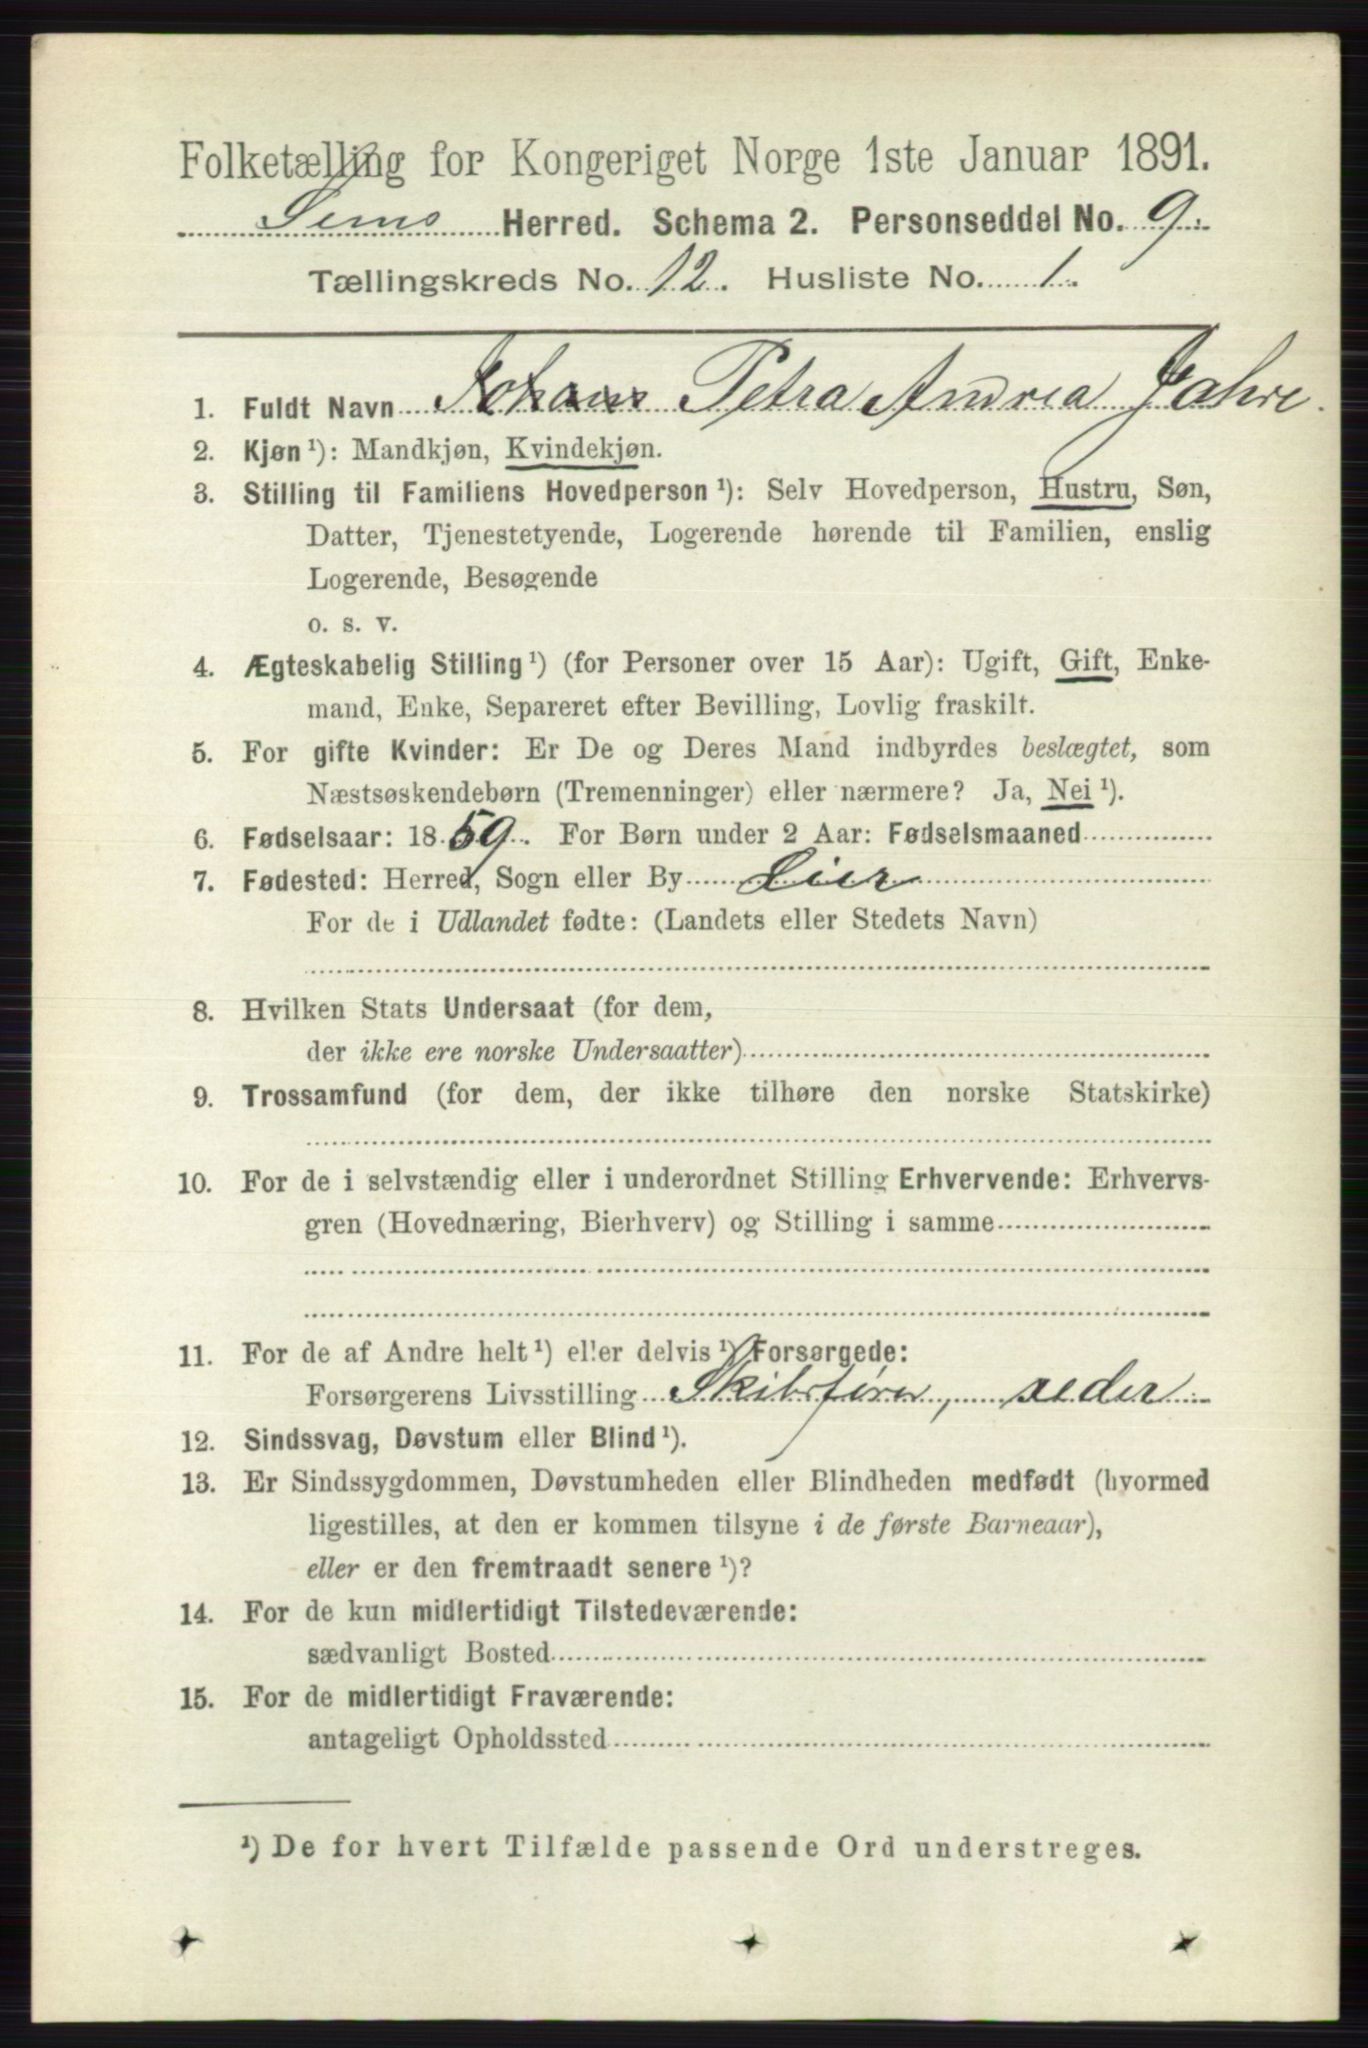 Folketælling for Kongeriget Norge 1ste Januar 1891.
Sems Herred. Schema 2. Personseddel No. 9.
Tællingskreds No. 12. Husliste No. 1.
1. Fuldt Navn Johans Petra Andrea Jahre.
2. Kjøn ¹): Mandkjøn, Kvindekjøn.
3. Stilling til Familiens Hovedperson ¹): Selv Hovedperson, Hustru, Søn,
Datter, Tjenestetyende, Logerende hørende til Familien, enslig
Logerende, Besøgende
o. s. v.
4. Ægteskabelig Stilling ¹) (for Personer over 15 Aar): Ugift, Gift, Enke-
mand, Enke, Separeret efter Bevilling, Lovlig fraskilt.
5. For gifte Kvinder: Er De og Deres Mand indbyrdes beslægtet, som
Næstsøskendebørn (Tremenninger) eller nærmere? Ja, Nei ¹).
6. Fødselsaar: 1859. For Børn under 2 Aar: Fødselsmaaned
7. Fødested: Herred, Sogn eller By Lier
For de i Udlandet fødte: (Landets eller Stedets Navn)
8. Hvilken Stats Undersaat (for dem,
der ikke ere norske Undersaatter)
9. Trossamfund (for dem, der ikke tilhøre den norske Statskirke)
10. For de i selvstændig eller i underordnet Stilling Erhvervende: Erhvervs-
gren (Hovednæring, Bierhverv) og Stilling i samme
11. For de af Andre helt ¹) eller delvis ¹) Forsørgede:
Forsørgerens Livsstilling Skibsfører, reder
12. Sindssvag, Døvstum eller Blind ¹).
13. Er Sindssygdommen, Døvstumheden eller Blindheden medfødt (hvormed
ligestilles, at den er kommen tilsyne i de første Barneaar),
eller er den fremtraadt senere ¹)?
14. For de kun midlertidigt Tilstedeværende:
sædvanligt Bosted
15. For de midlertidigt Fraværende:
antageligt Opholdssted
¹) De for hvert Tilfælde passende Ord understreges.